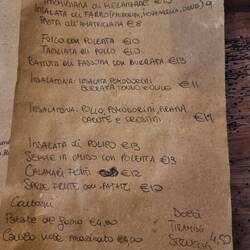 INSALATA DI FARRO
PASTA ALL'AMATRICIANA €8
FOLPO CON POLENTA €10
TAGLIATA DI POLLO €10
BATTUTA DI FASSONA CON BURRATA €13
INSALATONA: INSALATA POMODORINI
BURRATA TONNO E OLIVE €11
INSALATONA: POLLO, POMODORINI, GRANA,
CAROTE E CROSTINI €11
INSALATA DI POLIPO €13
SEPPIE IN UMIDO CON POLENTA €13
CALAMARI FRITTI €12
SARDE FRITTE CON PATATE €12
Contorni
Patate al forno €4,00
Cavolo nero €4,00
Dolci
TIRAMISÙ
4,50